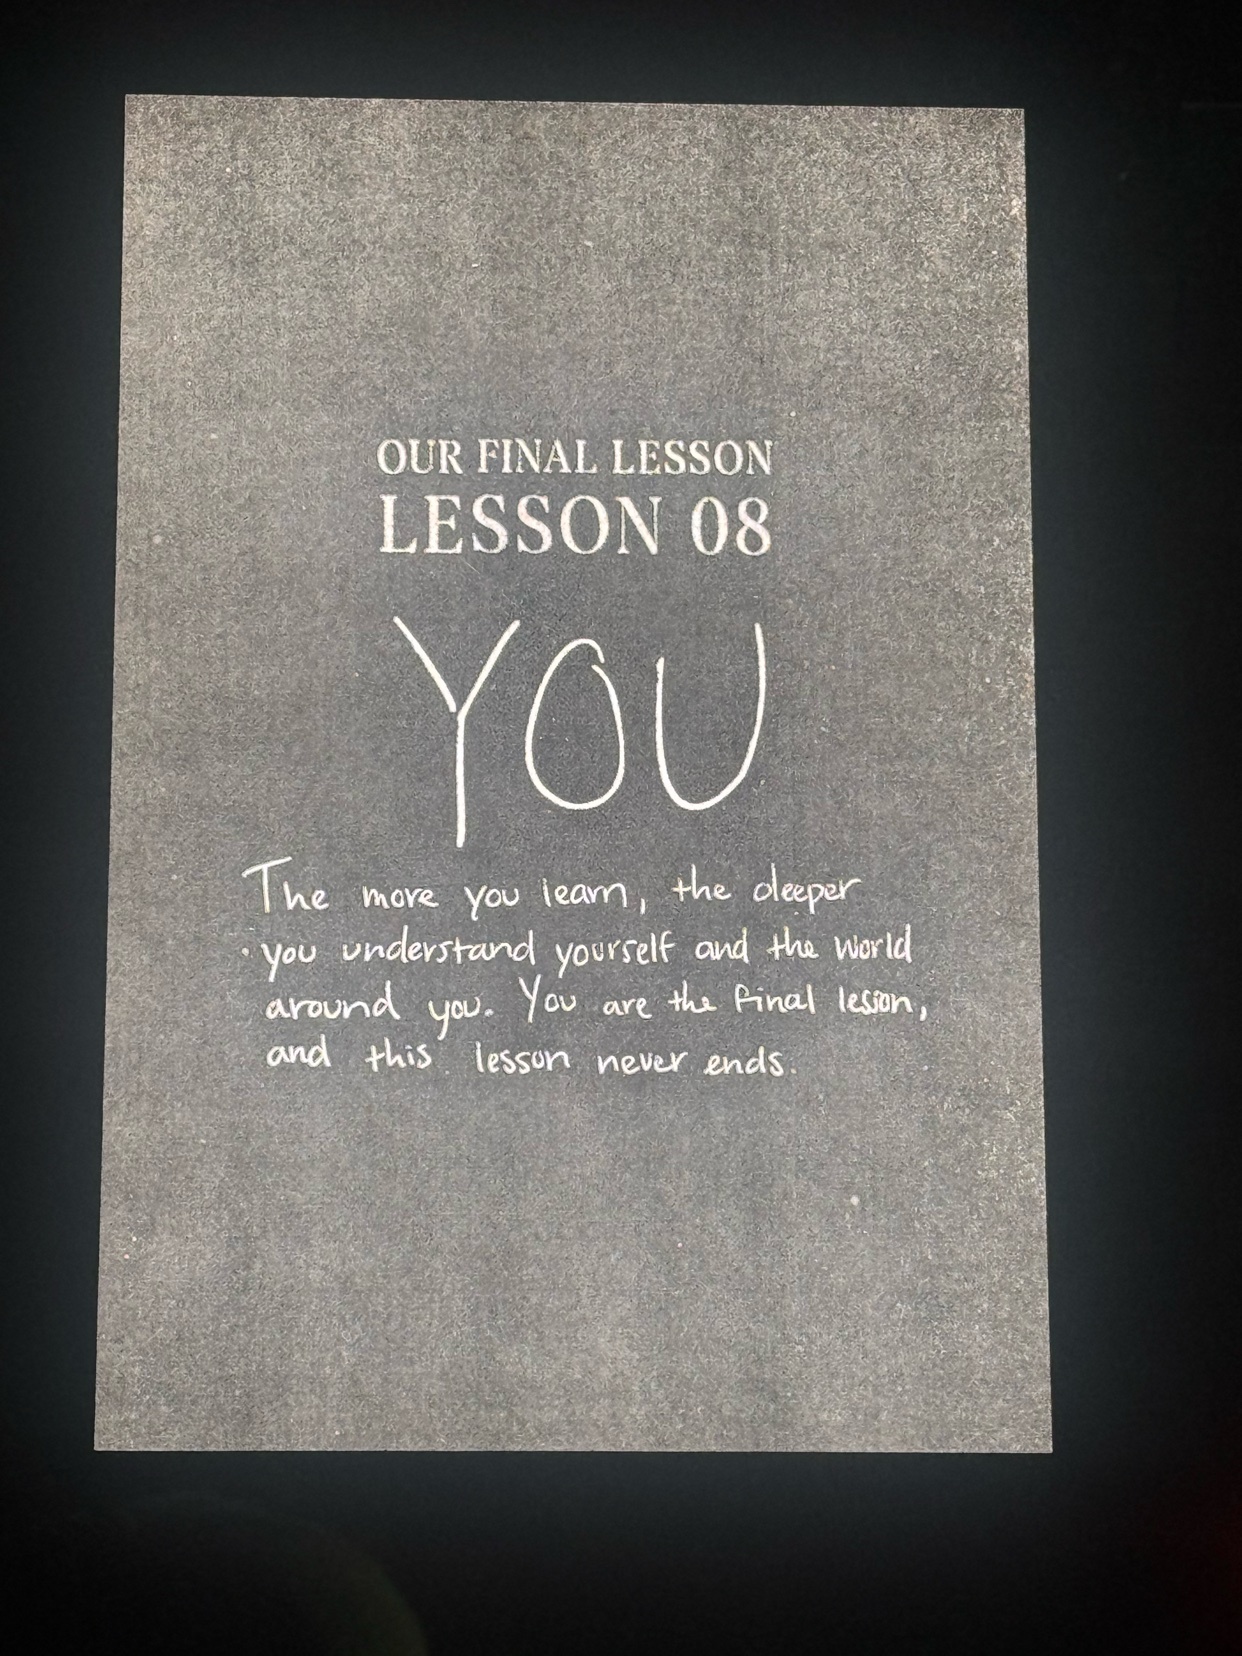 OUR FINAL LESSON
LESSON 08
YOU
The more you learn, the deeper
you understand yourself and the world
around you. You are the final lesson,
and this lesson never ends.